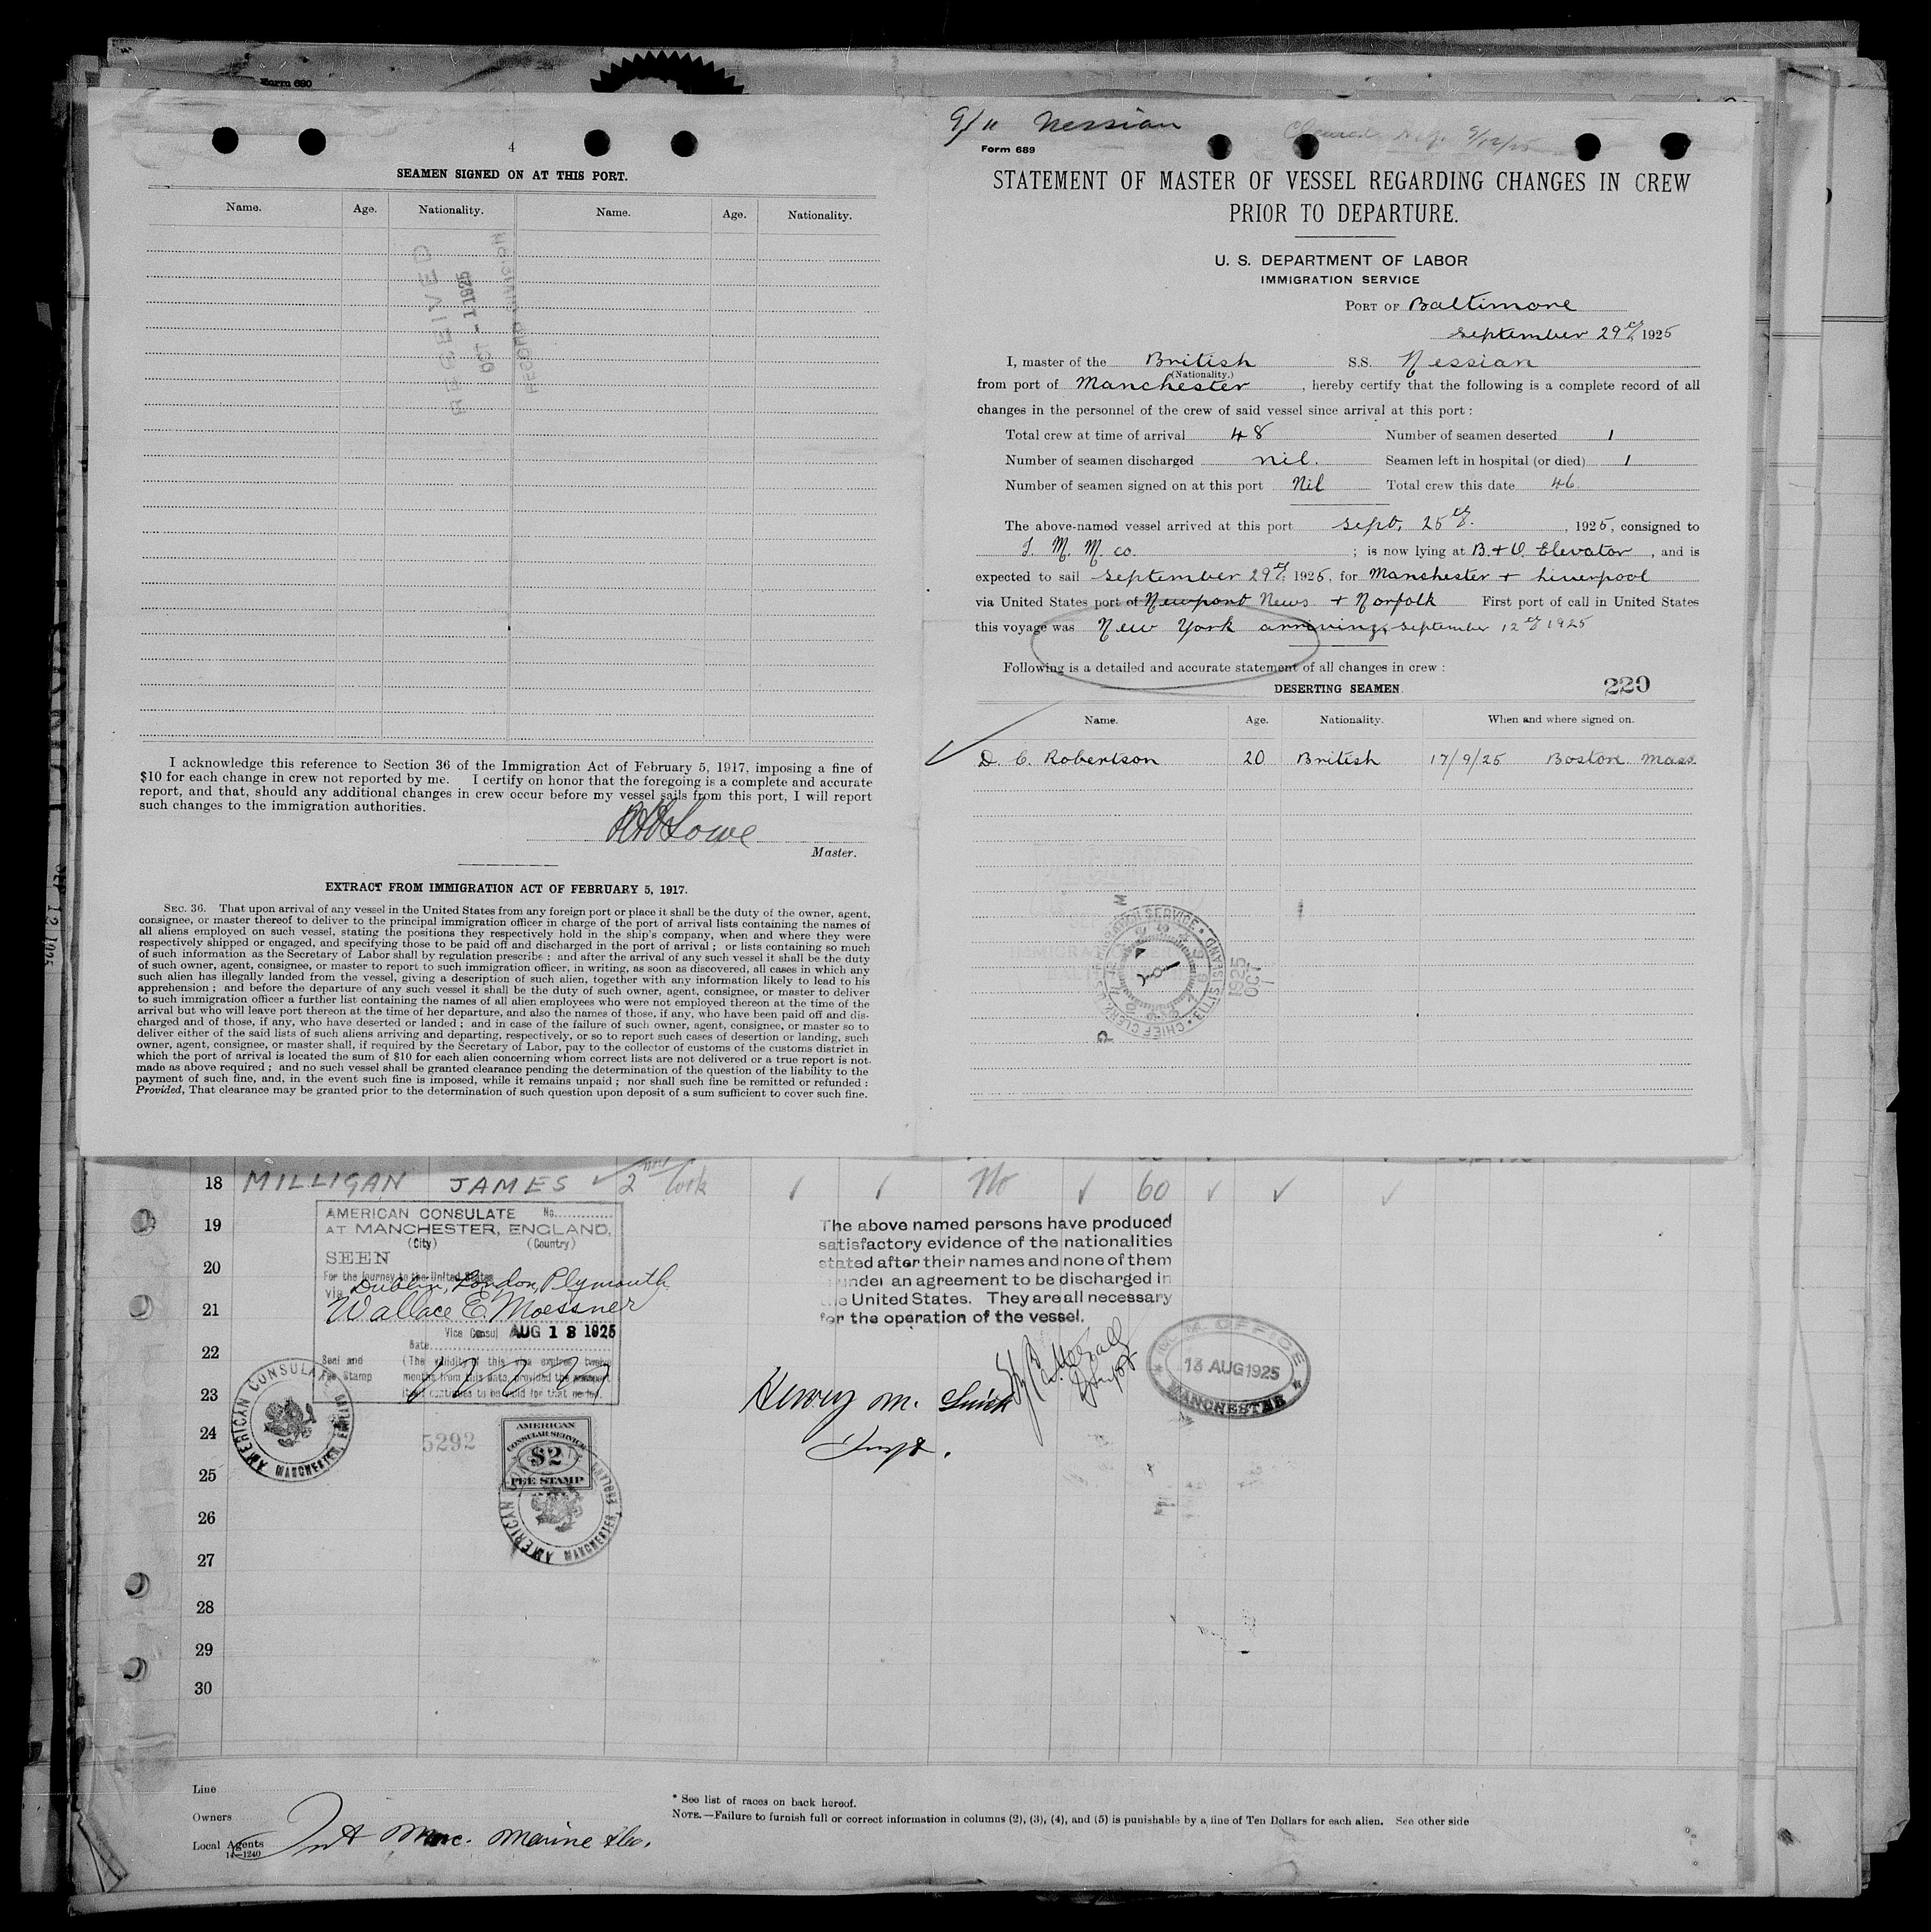 Form 690
4
SEAMEN SIGNED ON AT THIS PORT.
Name. Age. Nationality. Name. Age. Nationality.
RECEIVED
OCT - 1 1925
I acknowledge this reference to Section 36 of the Immigration Act of February 5, 1917, imposing a fine of
$10 for each change in crew not reported by me. I certify on honor that the foregoing is a complete and accurate
report, and that, should any additional changes in crew occur before my vessel sails from this port, I will report
such changes to the immigration authorities.
Lowe
Master.
EXTRACT FROM IMMIGRATION ACT OF FEBRUARY 5, 1917.
SEC. 36. That upon arrival of any vessel in the United States from any foreign port or place it shall be the duty of the owner, agent,
consignee, or master thereof to deliver to the principal immigration officer in charge of the port of arrival lists containing the names of
all aliens employed on such vessel, stating the positions they respectively hold in the ship's company, when and where they were
respectively shipped or engaged, and specifying those to be paid off and discharged in the port of arrival; or lists containing so much
of such information as the Secretary of Labor shall by regulation prescribe; and after the arrival of any such vessel it shall be the duty
of such owner, agent, consignee, or master to report to such immigration officer, in writing, as soon as discovered, all cases in which any
such alien has illegally landed from the vessel, giving a description of such alien, together with any information likely to lead to his
apprehension; and before the departure of any such vessel it shall be the duty of such owner, agent, consignee, or master to deliver
to such immigration officer a further list containing the names of all alien employees who were not employed thereon at the time of the
arrival but who will leave port thereon at the time of her departure, and also the names of those, if any, who have been paid off and dis-
charged and of those, if any, who have deserted or landed; and in case of the failure of such owner, agent, consignee, or master so to
deliver either of the said lists of such aliens arriving and departing, respectively, or so to report such cases of desertion or landing, such
owner, agent, consignee, or master shall, if required by the Secretary of Labor, pay to the collector of customs of the customs district in
which the port of arrival is located the sum of $10 for each alien concerning whom correct lists are not delivered or a true report is not
made as above required; and no such vessel shall be granted clearance pending the determination of the question of the liability to the
payment of such fine, and, in the event such fine is imposed, while it remains unpaid; nor shall such fine be remitted or refunded:
Provided, That clearance may be granted prior to the determination of such question upon deposit of a sum sufficient to cover such fine.
9/11 Nessian
Form 689
STATEMENT OF MASTER OF VESSEL REGARDING CHANGES IN CREW
PRIOR TO DEPARTURE.
U. S. DEPARTMENT OF LABOR
IMMIGRATION SERVICE
PORT OF Baltimore
September 29th, 1925
I, master of the British S.S. Nessian
(Nationality.)
from port of Manchester, hereby certify that the following is a complete record of all
changes in the personnel of the crew of said vessel since arrival at this port:
Total crew at time of arrival 48 Number of seamen deserted 1
Number of seamen discharged nil. Seamen left in hospital (or died) 1
Number of seamen signed on at this port Nil Total crew this date 46
The above-named vessel arrived at this port Sept. 25th, 1925, consigned to
I. M. M. Co. ; is now lying at B. & O. Elevator, and is
expected to sail September 29th, 1925, for Manchester + Liverpool
via United States port of Newport News + Norfolk First port of call in United States
this voyage was New York arriving September 12th 1925
Following is a detailed and accurate statement of all changes in crew:
DESERTING SEAMEN.
220
Name. Age. Nationality. When and where signed on.
D. C. Robertson 20 British 17/9/25 Boston Mass.
CHIEF CLERK, U.S. IMMIGRATION SERVICE • ELLIS ISLAND
1925
OCT
18 MILLIGAN JAMES 2nd Cook No 60
19
20
21
22
23
24
25
26
27
28
29
30
AMERICAN CONSULATE No.
AT MANCHESTER, ENGLAND.
(City) (Country)
SEEN
For the journey to the United States
via Dublin, London, Plymouth
Wallace E. Moessner
Vice Consul AUG 18 1925
Date
Seal and Fee Stamp
(The validity of this visa expires twelve
months from this date, provided the passport
continues to be valid for that period.)
AMERICAN CONSULATE MANCHESTER, ENGLAND
5292
AMERICAN
CONSULAR SERVICE
$2
FEE STAMP
AMERICAN MANCHESTER, ENGLAND
The above named persons have produced
satisfactory evidence of the nationalities
stated after their names and none of them
under an agreement to be discharged in
the United States. They are all necessary
for the operation of the vessel.
I.M.M. OFFICE
13 AUG 1925
MANCHESTER
Line
Owners
Local Agents Int Merc. Marine Co.
14—1240
* See list of races on back hereof.
NOTE.—Failure to furnish full or correct information in columns (2), (3), (4), and (5) is punishable by a fine of Ten Dollars for each alien. See other side
SEP 12 1925